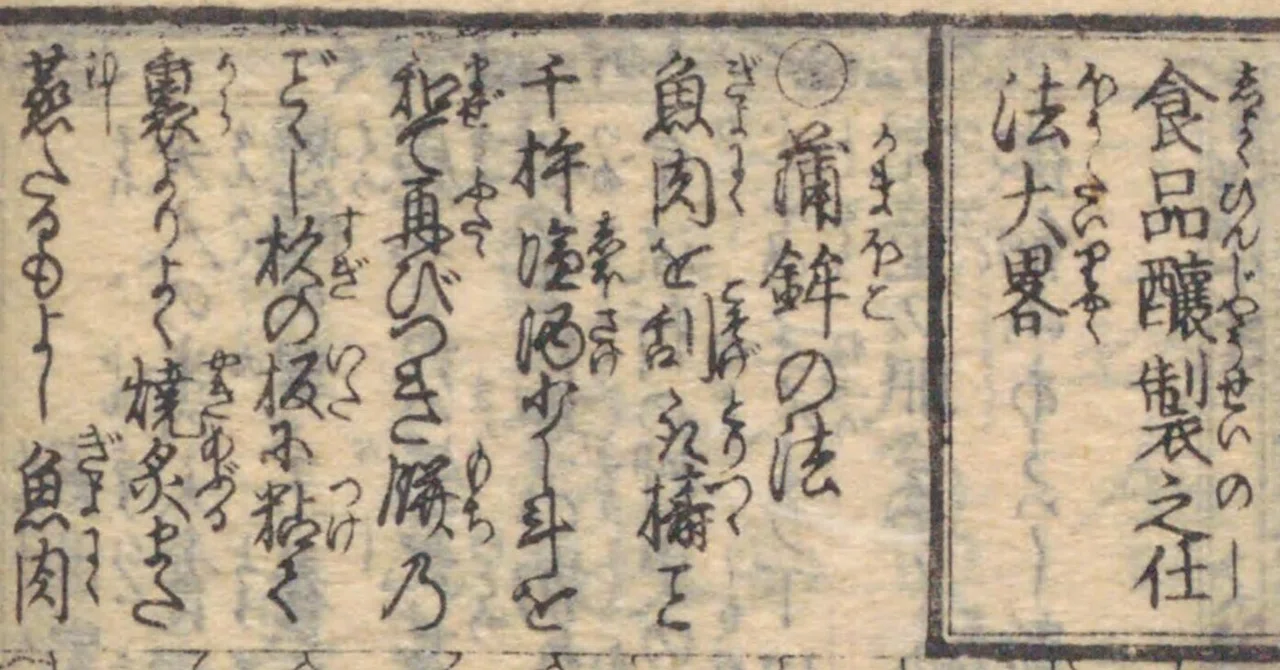 食品醸製之仕
法大畧
○蒲鉾の法
魚肉を刮取擣こと
千杵塩酒少し斗を
和て再びつき餅乃
ごくし杉の板に粘て
裏よりよく焼炙また
蒸たるもよし魚肉